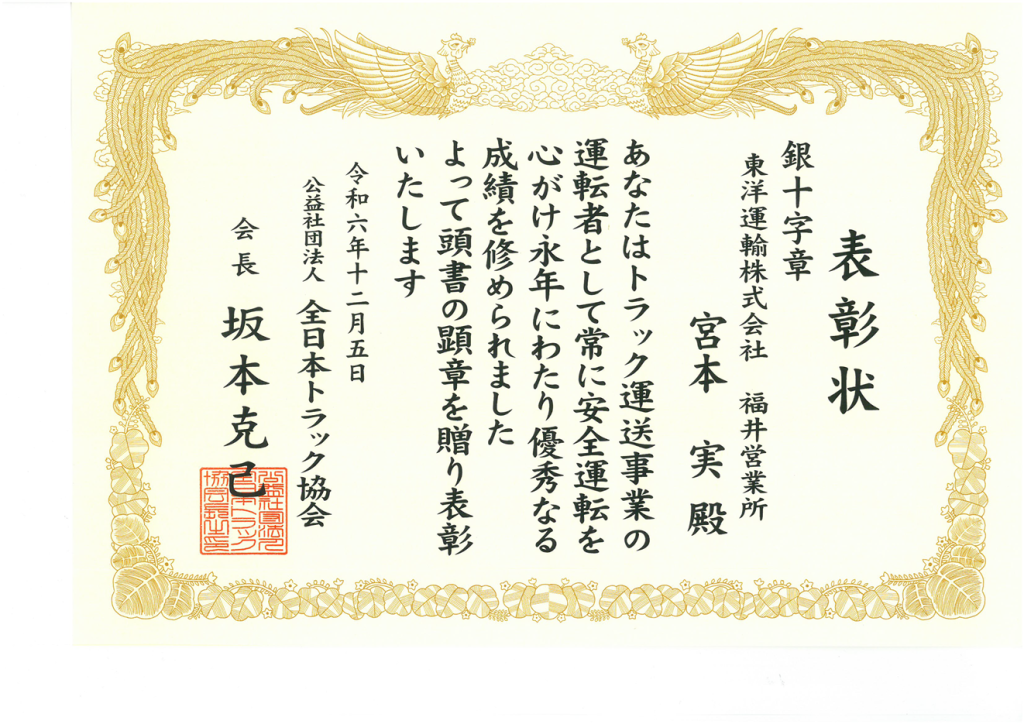 表彰状
銀十字章
東洋運輸株式会社　福井営業所
宮本　実　殿
あなたはトラック運送事業の
運転者として常に安全運転を
心がけ永年にわたり優秀なる
成績を修められました
よって頭書の顕章を贈り表彰
いたします
令和六年十二月五日
公益社団法人　全日本トラック協会
会長　坂本克己